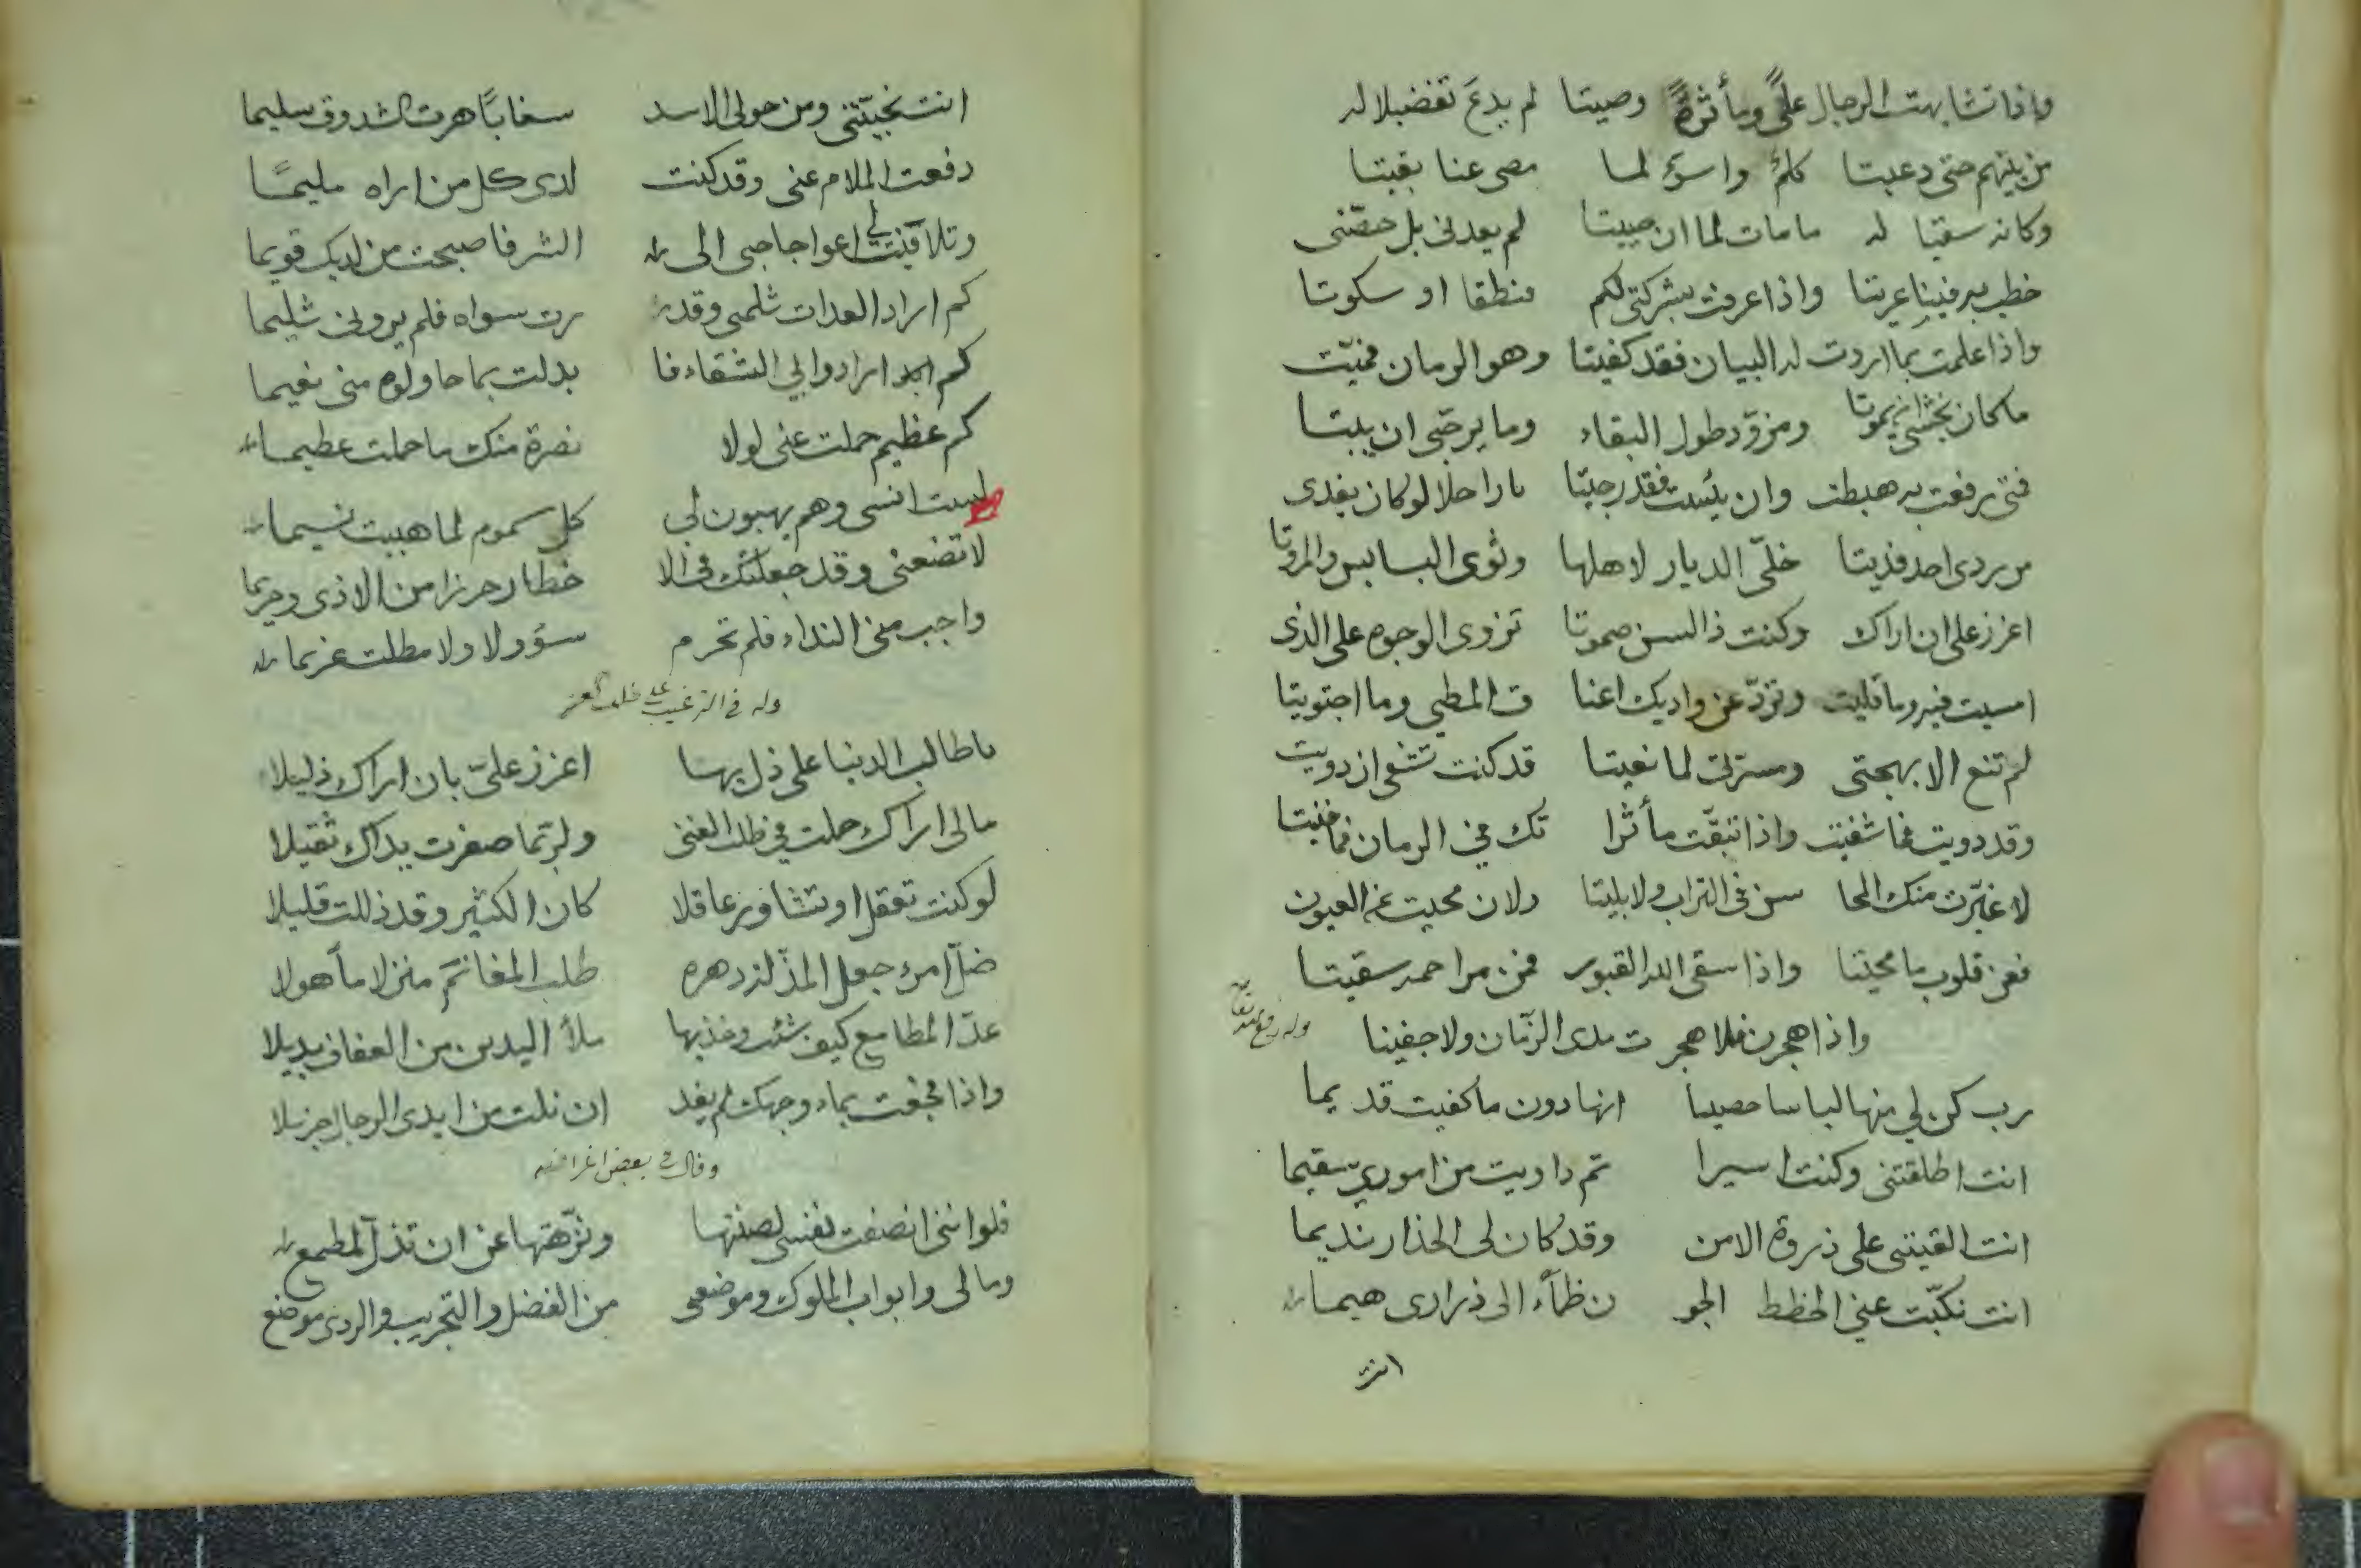 واذا تشابهت الرجال علًى ومأثرةً وصيتا لم يدع تفضيلا له
من بينهم حتى دعيتا كلمٌ واسوٌ لما مضى عنا بقيتا
وكانه سقيا له ما مات لما ان حييتا لم يعدنى بل خصّنى
خطب به فينا عريتا واذا عرفت بشركتى لكم منطقا او سكوتا
واذا علمت بما اردت له البيان فقد كفيتا وهو الزمان فميّت
ما كان يخشى ان يموتا ومزود طول البقاء وما يرجّى ان يبيتا
فتى رفعت به هبطت وان يئست فقد رجيتا يا راحلا لو كان يفدى
من ردى احد فديتا خلّى الديار لاهلها وثوى البسابس والمروتا
اعزز على ان اراك وكنت ذا لسن صموتا تزوى الوجوه على الذى
امسيت فيه وما قليت وتزدّ عن واديك اعنا ق المطى وما اجتويتا
لم تنع الا بهجتى ومسرتى لما نعيتا قد كنت تشفى ان دويت
وقد دويت فما شفيت واذا تبقّت مأثرا تك فى الزمان فما فنيتا
لا غيّرت منك المحا سن فى التراب ولا بليتا ولان محيت عن العيون
فعن قلوب ما محيتا واذا سقى الله القبور فمن مراحمه سقيتا
واذا هجرن فلا هجر ت مدى الزّمان ولا جفيتا
رب كن لي منها لباسا حصينا انها دون ما كفيت قديما
انت اطلقتنى وكنت اسيرا ثم داويت من اموري سقيما
انت القيتنى على ذروة الامن وقد كان لى الحذار نديما
انت نكبّت عنى الخطط الجو ن ظمآء الى ذرارى هيما
انت
انت نجيّتنى ومن حولى الاسد سغابًا هرت الشدوق سليما
دفعت الملام عنى وقد كنت لدى كل من اراه مليمًا
وتلافيت لي اعوجاجى الى الشر فاصبحت من لديك قويما
كم اراد العدات ثلمى وقد رت سواه فلم يرونى ثليما
كم ارادوا لي الشقاء فا بدلت بما حاولوه منى نعيما
كم عظيم حملت عنى لولا نصرة منك ما حملت عظيما
لست انسى وهم يهبون لى كل سموم لما هببت نسيما
لا تضعنى وقد جعلتك فى الا خطار حرزا من الاذى وحريما
واجب منى النداء فلم تحرم سؤولا ولا مطلت غريما
وله فى الترغيب على طلب العز
يا طالب الدنيا على ذل بها اعزز علىّ بان اراك ذليلا
مالى اراك حملت فى طلب الغنى ولربّما صفرت يداك ثقيلا
لو كنت تعقل او تشاور عاقلا كان الكثير وقد ذللت قليلا
ضلّ امرء جعل المذلّة دهره طلب المغانم منزلا مأهولا
عدّ المطامع كيف شئت وخذ بها ملأ اليدين من العفاف بديلا
واذا فجعت بماء وجهك لم يفد ان نلت من ايدى الرجال جزيلا
وقال فى بعض اغراضه
فلو اننى انصفت نفسى لصنتها ونزّهتها عن ان تذلّ لمطمع
ومالى وابواب الملوك وموضعى من الفضل والتجريب والردى موضع